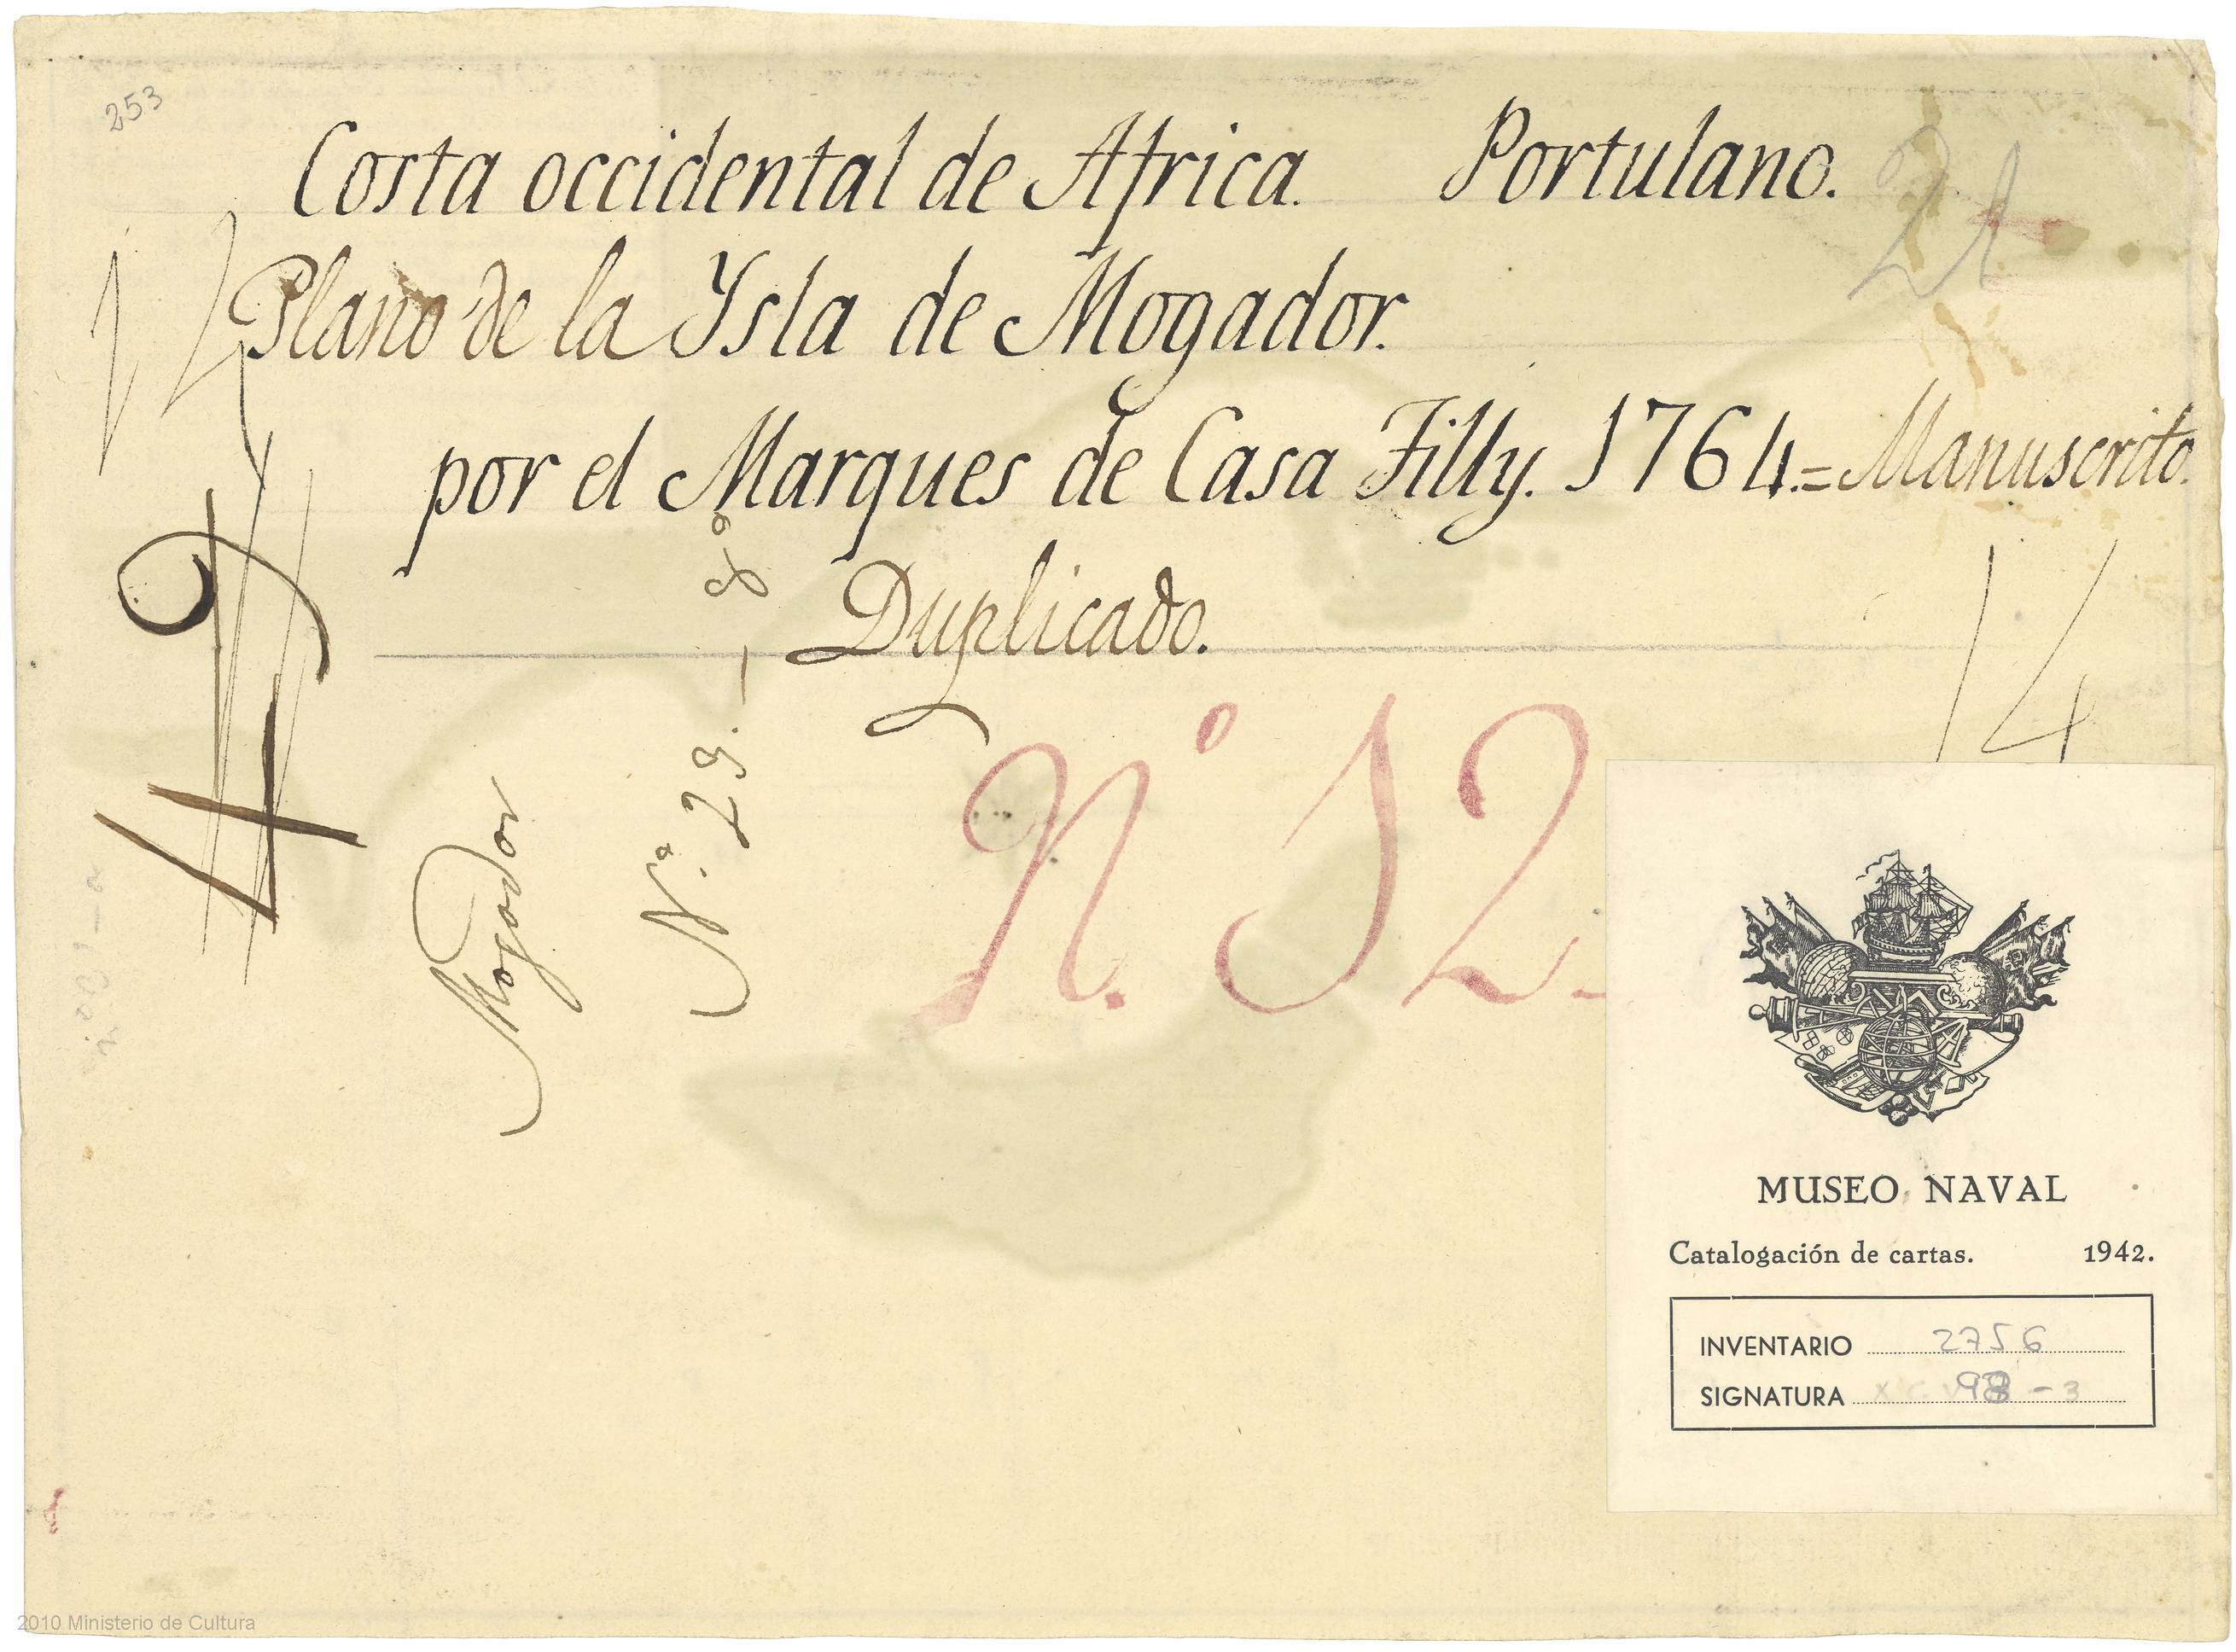 253
Costa occidental de Africa. Portulano.
21
Plano de la Ysla de Mogador.
14
por el Marques de Casa Tilly. 1764.= Manuscrito.
Duplicado.
49
14
Mogador
Nº. 29. — 8º
Nº. 12.
MUSEO NAVAL
Catalogación de cartas. 1942.
INVENTARIO 2756
SIGNATURA 98 - 3
2010 Ministerio de Cultura